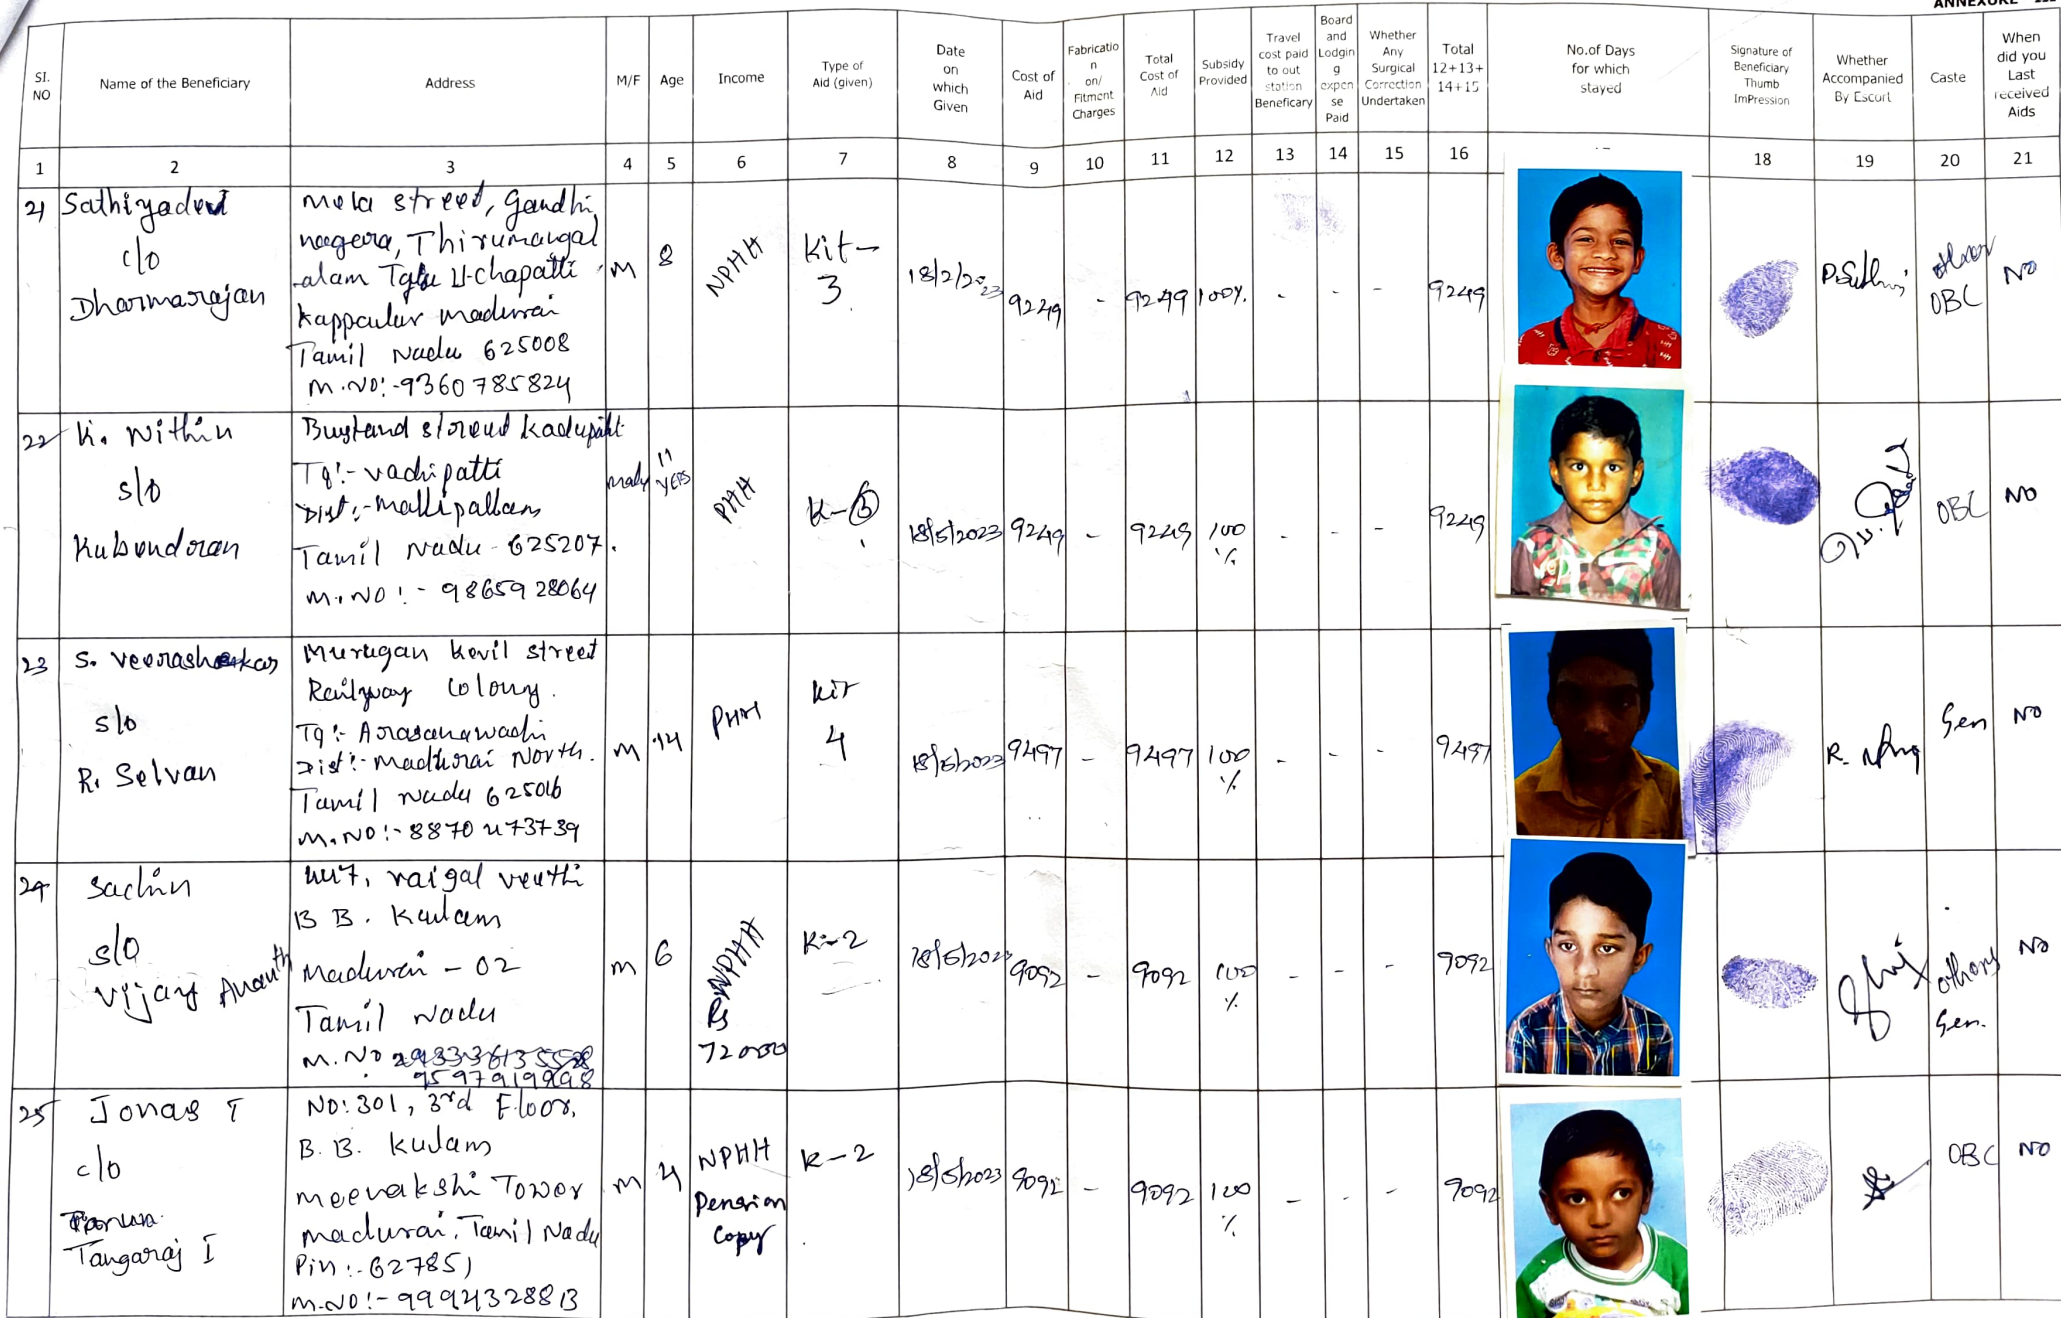 ANNEXURE
SI. NO
Name of the Beneficiary
Address
M/F
Age
Income
Type of Aid (given)
Date on which Given
Cost of Aid
Fabricatio n on/ Fitment Charges
Total Cost of Aid
Subsidy Provided
Travel cost paid to out station Beneficary
Board and Lodgin g expen se Paid
Whether Any Surgical Correction Undertaken
Total 12+13+ 14+15
No.of Days for which stayed
Signature of Beneficiary Thumb ImPression
Whether Accompanied By Escort
Caste
When did you Last received Aids
1 2 3 4 5 6 7 8 9 10 11 12 13 14 15 16 18 19 20 21
21
Sathiyadevi
c/o
Dharmarajan
Mela street, Gandhi
nagera, Thirumangal
alam
Kappalur Madurai
Tamil Nadu 625008
M.NO:-9360785824
M 8 NPHH Kit-3 18/2/2023 9249 - 9249 100% - - - 9249 OBC NO
22
K. Nithin
s/o
Kubendoran
Kadupatti
Tq:- vadipatti
Dist:-
Tamil Nadu - 625207.
M.NO:- 9865928064
11 YERS PHH K-3 18/5/2023 9249 - 9249 100 % - - - 9249 OBC NO
23
S.
s/o
R. Selvan
Murugan Kovil street
Railway Colony.
Tq:-
Dist:- Madhurai North.
Tamil Nadu 625016
M.NO:- 8870473739
M 14 PHH Kit 4 18/5/2023 9497 - 9497 100 % - - - 9497 R. Gen NO
24
Sachin
s/o
Vijay Ananth
B B. Kulam
Madurai - 02
Tamil Nadu
M.NO
M 6 NPHH Rs 72000 K-2 18/5/2023 9092 - 9092 100 % - - - 9092 others Gen. NO
25
Jonas T
c/o
Tangaraj I
NO: 301, 3rd Floor,
B.B. Kulam
Meenakshi Tower
madurai, Tamil Nadu
Pin:- 627851
M.NO:- 9994328813
M 4 NPHH Pension Copy K-2 18/5/2023 9092 - 9092 100 % - - - 9092 OBC NO